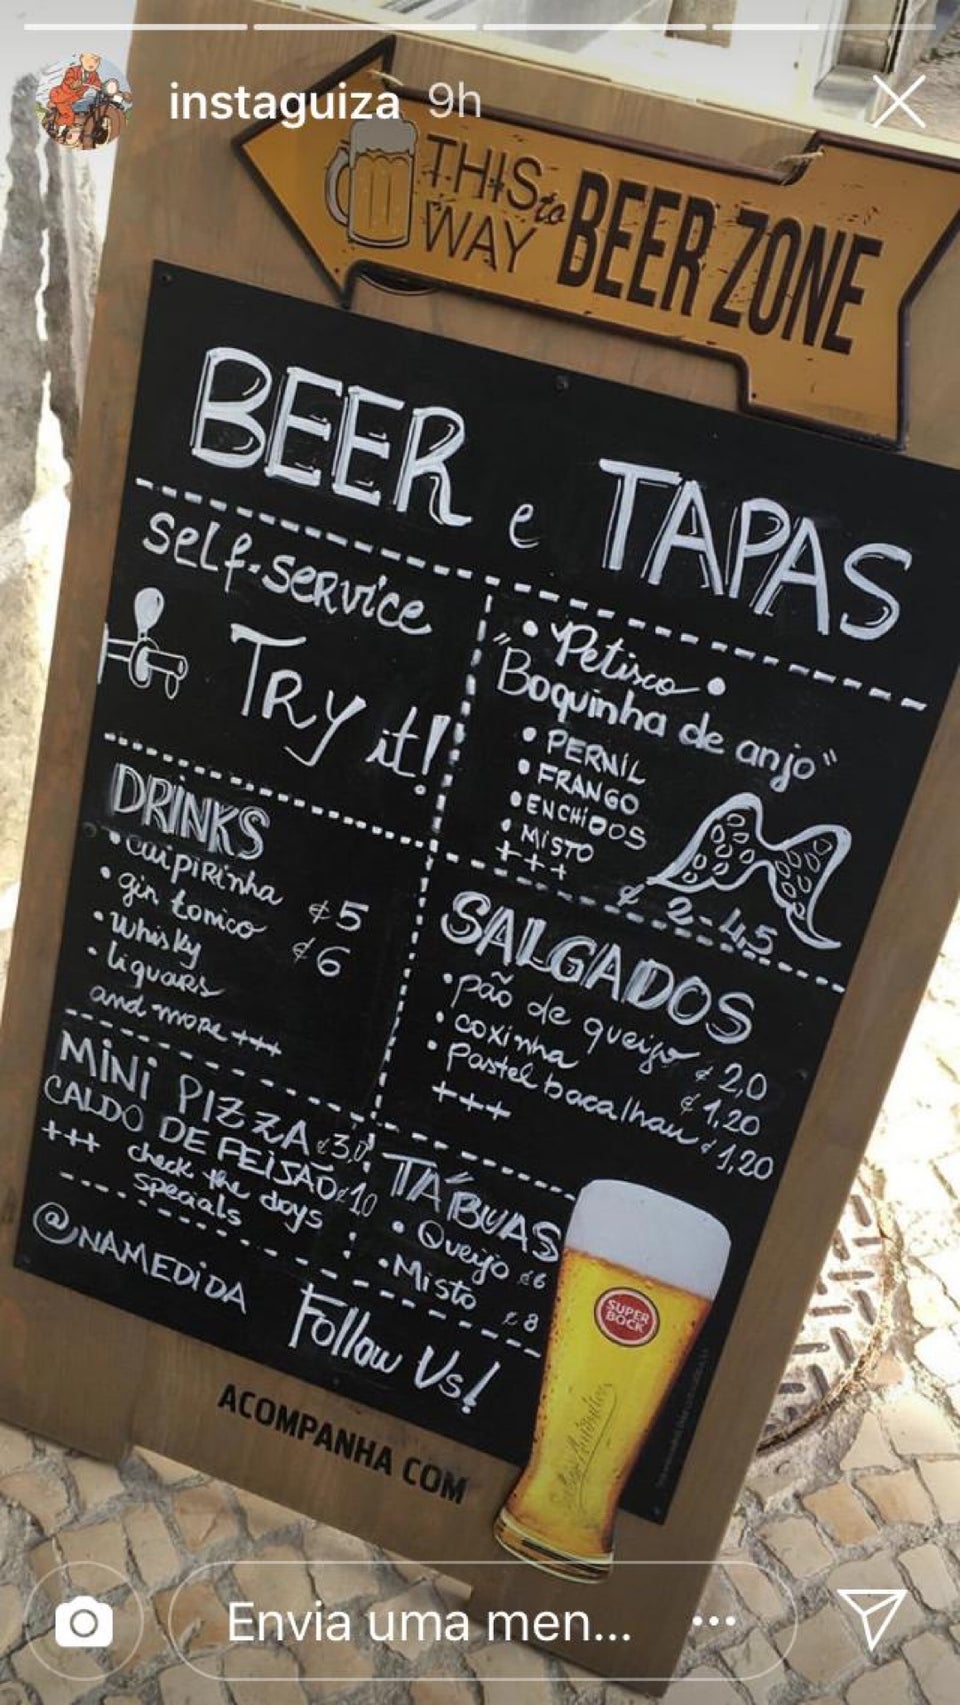 instaguiza 9h
THIS WAY to BEER ZONE
BEER e TAPAS
self-service
TRY it!
DRINKS
• caipirinha ¢5
• gin tonico ¢6
• whisky
• liquors
and more +++
MINI PIZZA ¢3,0
CALDO DE FEISÃO ¢10
+++ check the days
specials
• Petisco •
"Boquinha de anjo"
• PERNIL
• FRANGO
• ENCHIDOS
• MISTO
+++
¢ 2-4,5
SALGADOS
• pão de queijo ¢2,0
• coxinha ¢1,20
• pastel bacalhau ¢1,20
+++
TÁBUAS
• Queijo ¢6
• Misto ¢8
@NAMEDIDA
Follow Us!
SUPER
BOCK
Sabor Autêntico
ACOMPANHA COM
Envia uma men...